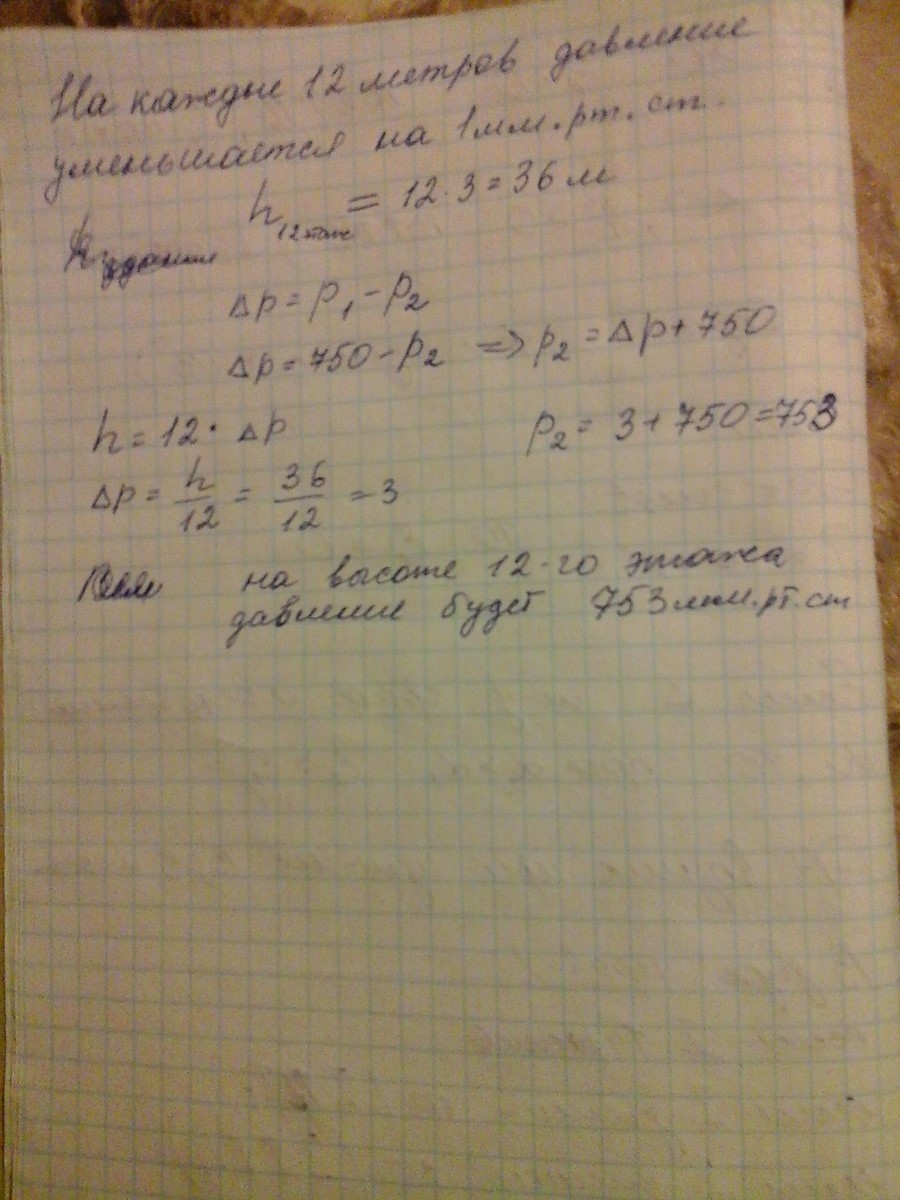 На каждые 12 метров давление
уменьшается на 1мм.рт.ст.
h 12 этаж = 12·3=36м
Δp = p₁ - p₂
Δp = 750 - p₂ => p₂ = Δp + 750
h = 12· Δp
p₂ = 3 + 750 = 753
Δp = h/12 = 36/12 = 3
на высоте 12-го этажа
давление будет 753мм.рт.ст